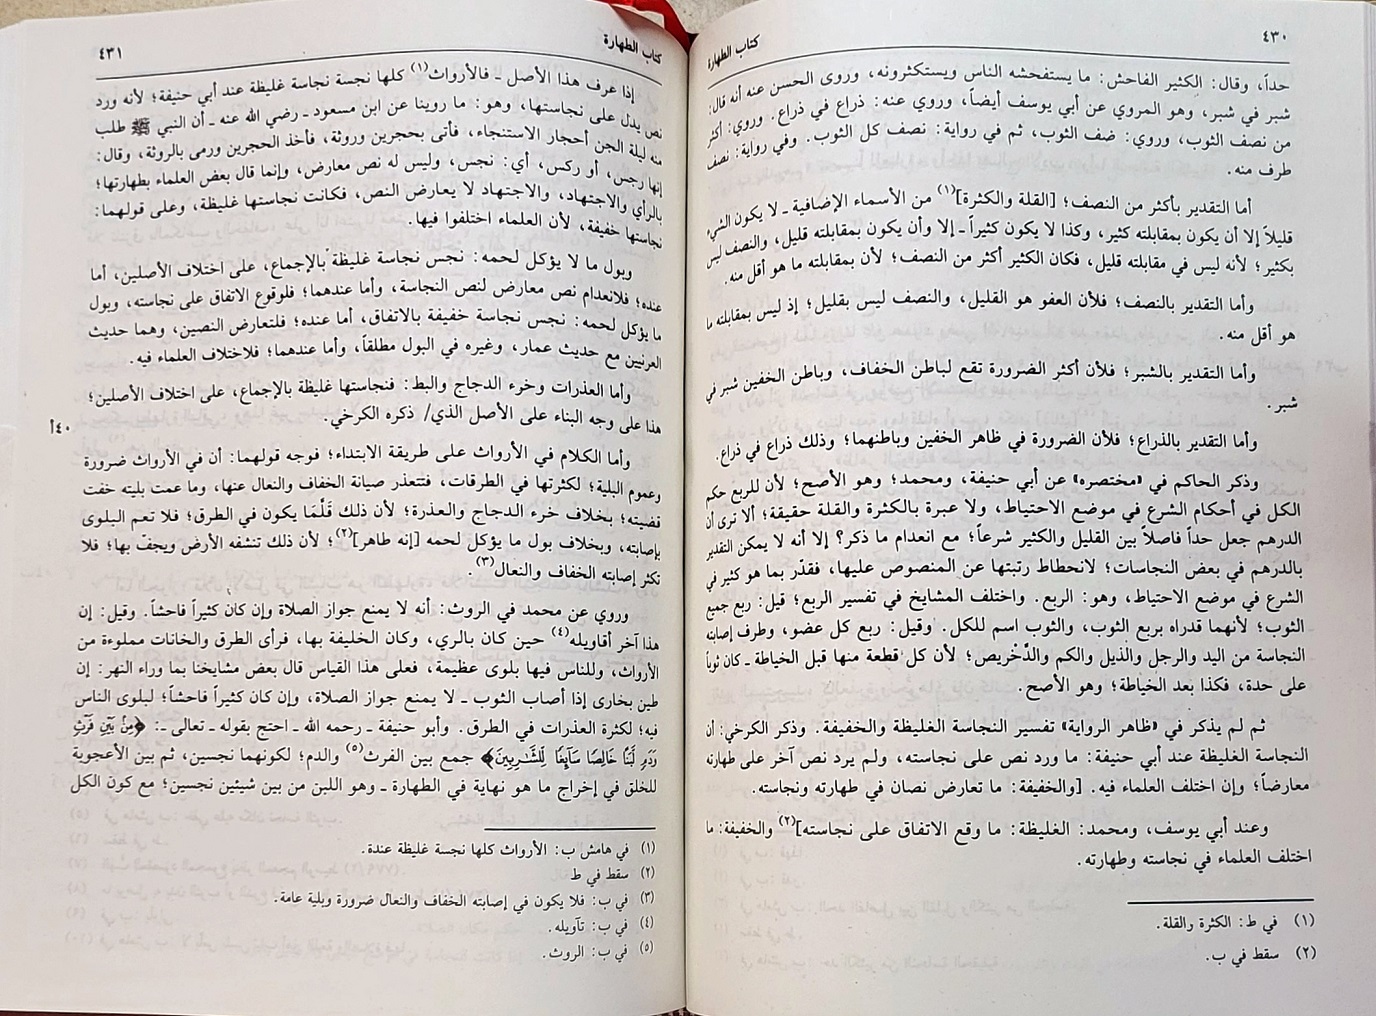 ٤٣٠
كتاب الطهارة
حداً، وقال: الكثير الفاحش: ما يستفحشه الناس ويستكثرونه، وروى الحسن عنه أنه قال:
شبر في شبر، وهو المروي عن أبي يوسف أيضاً، وروي عنه: ذراع في ذراع. وروي: أكثر
من نصف الثوب، وروي: ضف الثوب، ثم في رواية: نصف كل الثوب. وفي رواية: نصف
طرف منه.
أما التقدير بأكثر من النصف؛ [القلة والكثرة](١) من الأسماء الإضافية ـ لا يكون الشيء
قليلاً إلا أن يكون بمقابلته كثير، وكذا لا يكون كثيراً ـ إلا وأن يكون بمقابلته قليل، والنصف ليس
بكثير؛ لأنه ليس في مقابلته قليل، فكان الكثير أكثر من النصف؛ لأن بمقابلته ما هو أقل منه.
وأما التقدير بالنصف؛ فلأن العفو هو القليل، والنصف ليس بقليل؛ إذ ليس بمقابلته ما
هو أقل منه.
وأما التقدير بالشبر؛ فلأن أكثر الضرورة تقع لباطن الخفاف، وباطن الخفين شبر في
شبر.
وأما التقدير بالذراع؛ فلأن الضرورة في ظاهر الخفين وباطنهما؛ وذلك ذراع في ذراع.
وذكر الحاكم في «مختصره» عن أبي حنيفة، ومحمد؛ وهو الأصح؛ لأن للربع حكم
الكل في أحكام الشرع في موضع الاحتياط، ولا عبرة بالكثرة والقلة حقيقة؛ ألا ترى أن
الدرهم جعل حداً فاصلاً بين القليل والكثير شرعاً؛ مع انعدام ما ذكر؟ إلا أنه لا يمكن التقدير
بالدرهم في بعض النجاسات؛ لانحطاط رتبتها عن المنصوص عليها، فقدّر بما هو كثير في
الشرع في موضع الاحتياط، وهو: الربع. واختلف المشايخ في تفسير الربع؛ قيل: ربع جميع
الثوب؛ لأنهما قدراه بربع الثوب، والثوب اسم للكل. وقيل: ربع كل عضو، وطرف إصابته
النجاسة من اليد والرجل والذيل والكم والدِّخريص؛ لأن كل قطعة منها قبل الخياطة ـ كان ثوباً
على حدة، فكذا بعد الخياطة؛ وهو الأصح.
ثم لم يذكر في «ظاهر الرواية» تفسير النجاسة الغليظة والخفيفة. وذكر الكرخي: أن
النجاسة الغليظة عند أبي حنيفة: ما ورد نص على نجاسته، ولم يرد نص آخر على طهارته
معارضاً؛ وإن اختلف العلماء فيه. [والخفيفة: ما تعارض نصان في طهارته ونجاسته.
وعند أبي يوسف، ومحمد: الغليظة: ما وقع الاتفاق على نجاسته](٢) والخفيفة: ما
اختلف العلماء في نجاسته وطهارته.
(١) في ط: الكثرة والقلة.
(٢) سقط في ب.
كتاب الطهارة
٤٣١
إذا عرف هذا الأصل ـ فالأرواث(١) كلها نجسة نجاسة غليظة عند أبي حنيفة؛ لأنه ورد
نص يدل على نجاستها، وهو: ما روينا عن ابن مسعود ـ رضي الله عنه ـ أن النبي ﷺ طلب
منه ليلة الجن أحجار الاستنجاء، فأتى بحجرين وروثة، فأخذ الحجرين ورمى بالروثة، وقال:
إنها رجس، أو ركس، أي: نجس، وليس له نص معارض، وإنما قال بعض العلماء بطهارتها؛
بالرأي والاجتهاد، والاجتهاد لا يعارض النص، فكانت نجاستها غليظة، وعلى قولهما:
نجاستها خفيفة، لأن العلماء اختلفوا فيها.
وبول ما لا يؤكل لحمه: نجس نجاسة غليظة بالإجماع، على اختلاف الأصلين، أما
عنده؛ فلانعدام نص معارض لنص النجاسة، وأما عندهما؛ فلوقوع الاتفاق على نجاسته، وبول
ما يؤكل لحمه: نجس نجاسة خفيفة بالاتفاق، أما عنده؛ فلتعارض النصين، وهما حديث
العرنيين مع حديث عمار، وغيره في البول مطلقاً، وأما عندهما؛ فلاختلاف العلماء فيه.
وأما العذرات وخرء الدجاج والبط: فنجاستها غليظة بالإجماع، على اختلاف الأصلين؛
هذا على وجه البناء على الأصل الذي/ ذكره الكرخي.
٤٠أ
وأما الكلام في الأرواث على طريقة الابتداء؛ فوجه قولهما: أن في الأرواث ضرورة
وعموم البلية؛ لكثرتها في الطرقات، فتتعذر صيانة الخفاف والنعال عنها، وما عمت بليته خفت
قضيته؛ بخلاف خرء الدجاج والعذرة؛ لأن ذلك قَلَّمَا يكون في الطرق؛ فلا تعم البلوى
بإصابته، وبخلاف بول ما يؤكل لحمه [إنه طاهر](٢)؛ لأن ذلك تنشفه الأرض ويجفّ بها؛ فلا
تكثر إصابته الخفاف والنعال(٣).
وروي عن محمد في الروث: أنه لا يمنع جواز الصلاة وإن كان كثيراً فاحشاً. وقيل: إن
هذا آخر أقاويله(٤) حين كان بالري، وكان الخليفة بها، فرأى الطرق والخانات مملوءة من
الأرواث، وللناس فيها بلوى عظيمة، فعلى هذا القياس قال بعض مشايخنا بما وراء النهر: إن
طين بخارى إذا أصاب الثوب ـ لا يمنع جواز الصلاة، وإن كان كثيراً فاحشاً؛ لبلوى الناس
فيه؛ لكثرة العذرات في الطرق. وأبو حنيفة ـ رحمه الله ـ احتج بقوله ـ تعالى ـ: ﴿مِنۢ بَيۡنِ فَرۡثٖ
وَدَمٖ لَّبَنًا خَالِصٗا سَآئِغٗا لِّلشَّٰرِبِينَ﴾ جمع بين الفرث(٥) والدم؛ لكونهما نجسين، ثم بين الأعجوبة
للخلق في إخراج ما هو نهاية في الطهارة ـ وهو اللبن من بين شيئين نجسين؛ مع كون الكل
(١) في هامش ب: الأرواث كلها نجسة غليظة عندة.
(٢) سقط في ط
(٣) في ب: فلا يكون في إصابته الخفاف والنعال ضرورة وبلية عامة.
(٤) في ب: تآويله.
(٥) في ب: الروث.